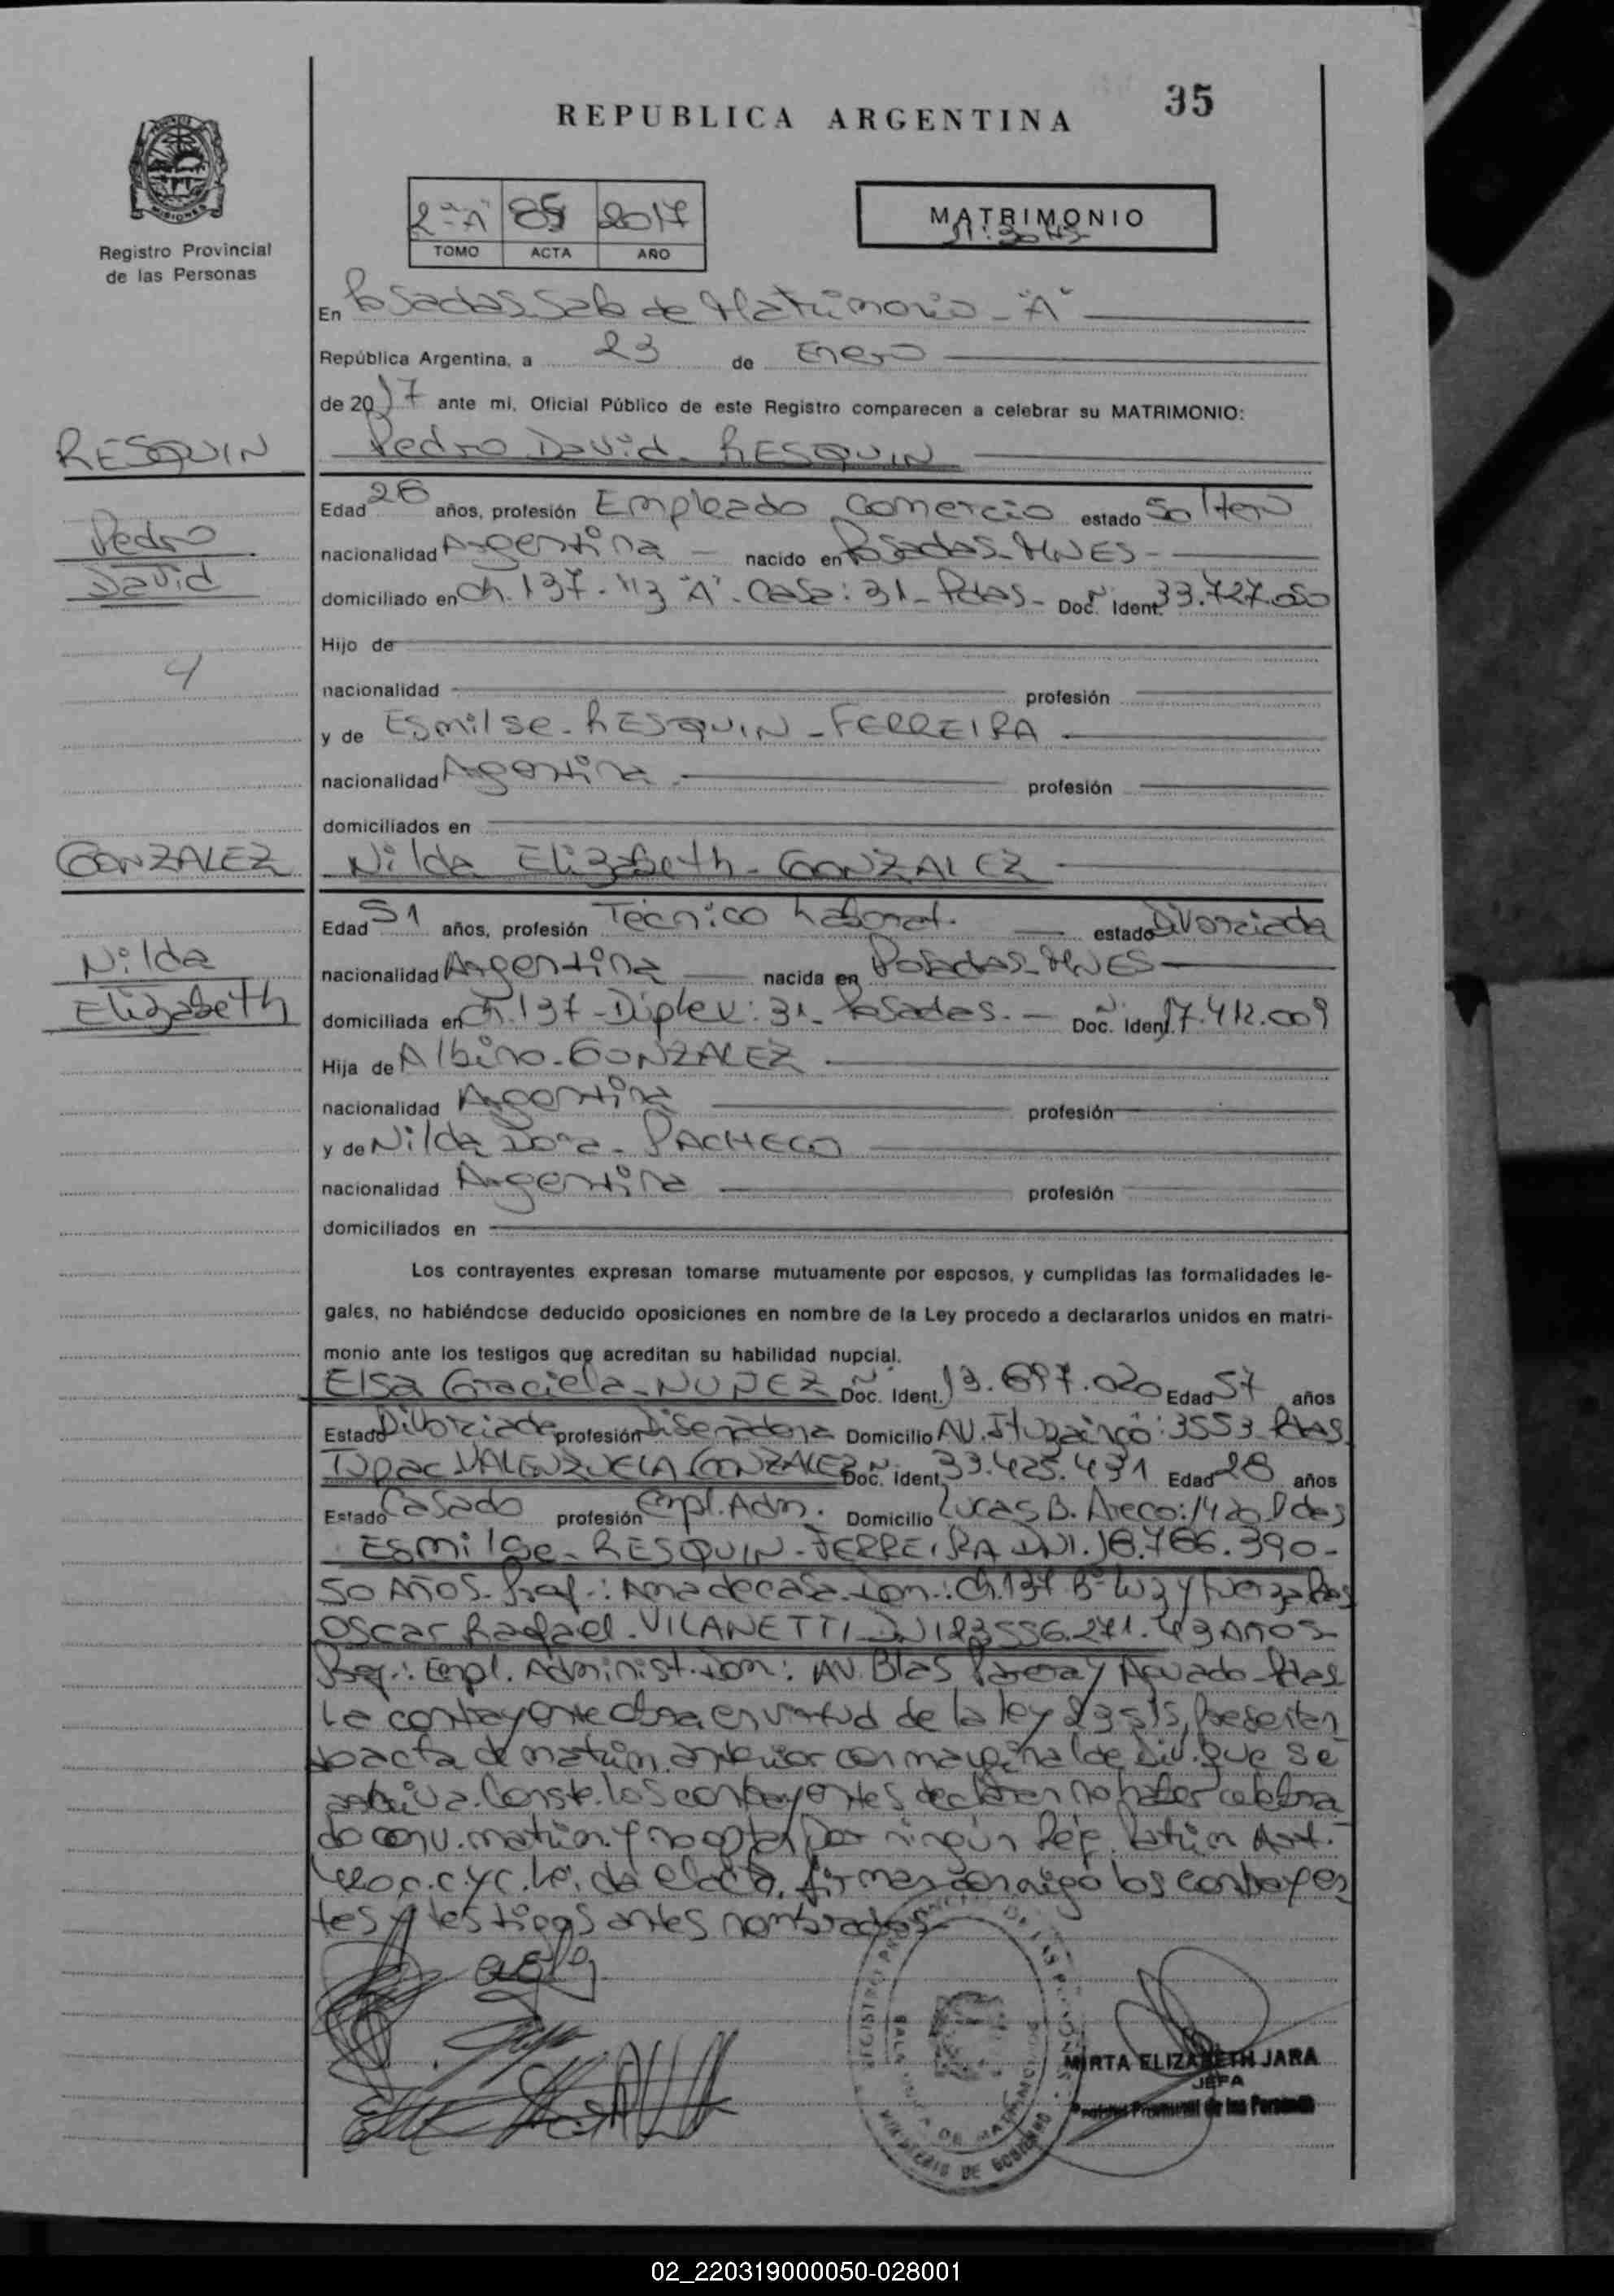 35
REPUBLICA ARGENTINA
MISIONES
Registro Provincial
de las Personas
2º "A" 85 2017
TOMO ACTA AÑO
MATRIMONIO
En Posadas Sala de Matrimonio - "A"
República Argentina, a 23 de Enero
de 2017 ante mi, Oficial Público de este Registro comparecen a celebrar su MATRIMONIO:
RESQUIN
Pedro David - RESQUIN
Edad 26 años, profesión Empleado Comercio estado Soltero
Pedro
David
nacionalidad Argentina - nacido en Posadas - MNES -
domiciliado en Ch. 137 - Mz "A" - Casa: 31 - Pdas - Doc. Ident. 33.727.050
Hijo de
4
nacionalidad profesión
y de Esmilse - RESQUIN - FERREIRA
nacionalidad Argentina profesión
domiciliados en
GONZALEZ
Nilda Elizabeth - GONZALEZ
Edad 51 años, profesión Técnico Laborat. estado Divorciada
Nilda
Elizabeth
nacionalidad Argentina nacida en Posadas - MNES -
domiciliada en Ch. 137 - Duplex: 31 - Posadas. - Doc. Ident. 17.412.009
Hija de Albino - GONZALEZ
nacionalidad Argentina profesión
y de Nilda Dora - PACHECO
nacionalidad Argentina profesión
domiciliados en
Los contrayentes expresan tomarse mutuamente por esposos, y cumplidas las formalidades le-
gales, no habiéndose deducido oposiciones en nombre de la Ley procedo a declararlos unidos en matri-
monio ante los testigos que acreditan su habilidad nupcial.
Elsa Graciela - NUÑEZ Doc. Ident. 13.697.020 Edad 57 años
Estado Divorciada profesión Diseñadora Domicilio AV. Ituzaingó: 3553 Pdas
Tupac VALENZUELA GONZALEZ Doc. Ident. 33.425.431 Edad 28 años
Estado Casado profesión Empl. Adm. Domicilio Lucas B. Areco: 1420 Pdas
Esmilse - RESQUIN - FERREIRA DNI. 18.766.390 -
50 AÑOS - Prof.: Ama de casa - Dom.: Ch. 137 Bº Luz y Fuerza Pdas
Oscar Rafael - VILANETTI DNI 23.556.271. 43 AÑOS -
Prof.: Empl. Administ. Dom: AV. Blas Parera y Aguado - Pdas
La contrayente obra en virtud de la ley 23515, Presentan
do acta de matrim. anterior con marginal de Div. que se
archiva. Conste. los contrayentes declaran no haber celebra
do conv. matrim. y no optar por ningún Rég. Patrim Art.
C.y C. Leída el acta, firman conmigo los contrayen
tes y testigos antes nombrados -
MINISTERIO DE GOBIERNO
MIRTA ELIZABETH JARA
JEFA
Registro Provincial de las Personas
02_220319000050-028001